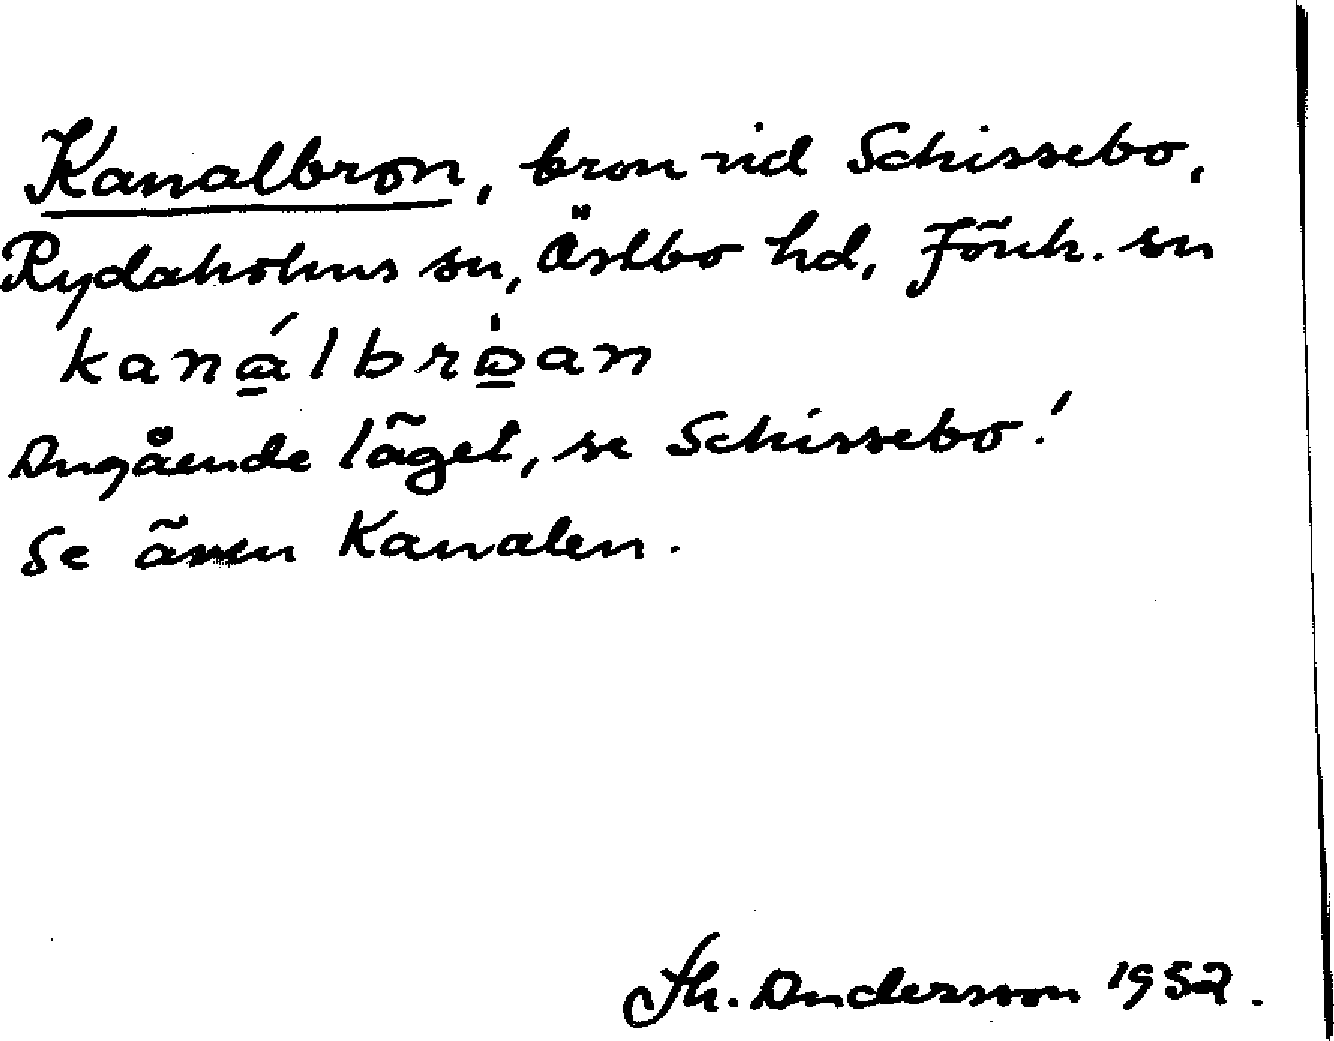 Kanalbron, bron vid Schissebo,
Rydaholms sn, Östbo hd, Jönk. ln
kanálbròan
Angående läget, se Schissebo!
Se även Kanalen.
Th. Andersson 1952.